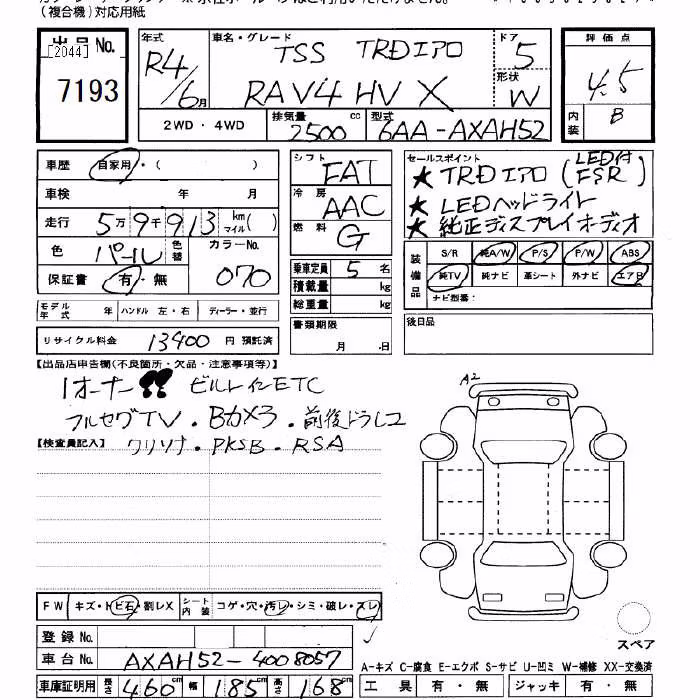 (複合機)対応用紙
出品No.
[2044]
7193
年式
R4/6月
車名・グレード
TSS TRDエアロ
RAV4 HV X
ドア
5
形状
W
評価点
4.5
内装
B
2WD・4WD
排気量
2500 cc
型式
6AA-AXAH52
車歴 自家用・( )
車検 年 月
走行 5万9千913 km マイル( )
色 パール 色替 カラーNo. 070
保証書 有・無
モデル年式 年 ハンドル 左・右 ディーラー・並行
リサイクル料金 13400 円 預託済
シフト FAT
冷房 AAC
燃料 G
乗車定員 5 名
積載量 kg
総重量 kg
書類期限
月 日
セールスポイント
★ TRDエアロ (LED付 FSR)
★ LEDヘッドライト
★ 純正ディスプレイオーディオ
装備品
S/R 純A/W P/S P/W ABS
純TV 純ナビ 革シート 外ナビ エアB
ナビ型番:
後日品
【出品店申告欄(不良箇所・欠品・注意事項等)】
1オーナー!! ビルトインETC
フルセグTV・Bカメラ・前後ドラレコ
クリソナ・PKSB・RSA
【検査員記入】
A2
FW キズ・トビ石・割レX シート内装 コゲ・穴・汚レ・シミ・破レ・スレ
登録No.
車台No. AXAH52-4008057
車庫証明用 長さ 460cm 幅 185cm 高さ 168cm
スペア
A-キズ C-腐食 E-エクボ S-サビ U-凹ミ W-補修 XX-交換済
工具 有・無 ジャッキ 有・無